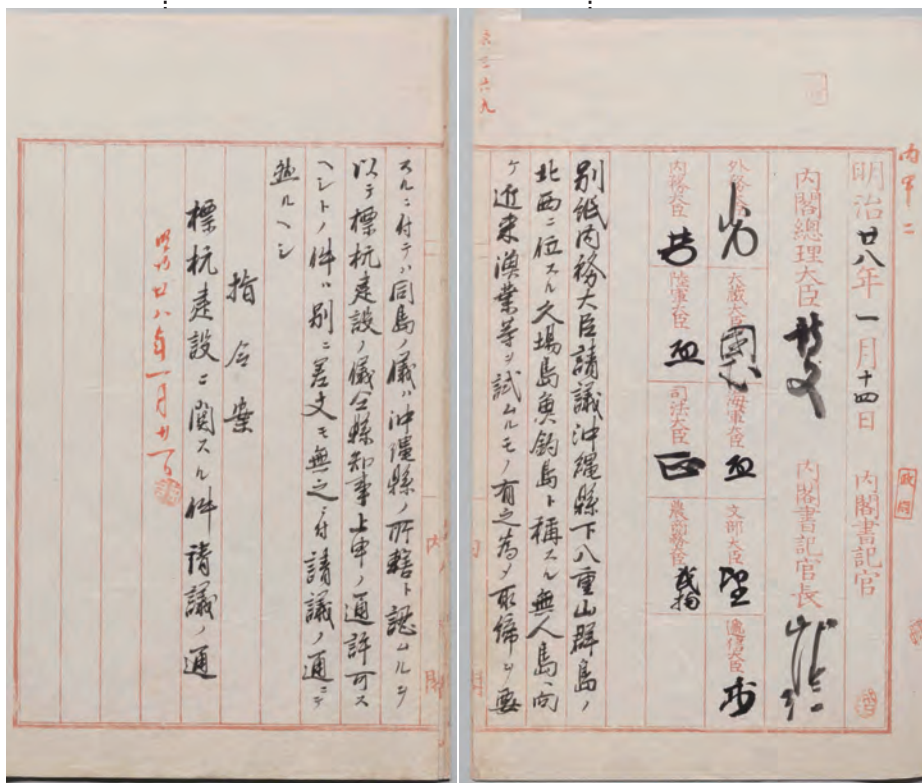 内甲二
明治廿八年一月十四日
内閣書記官
内閣總理大臣
内閣書記官長
外務大臣
大蔵大臣
海軍大臣
文部大臣
逓信大臣
内務大臣
陸軍大臣
司法大臣
農商務大臣
別紙内務大臣請議沖縄縣下八重山群島ノ
北西ニ位スル久場島魚釣島ト稱スル無人島ヘ向
ケ近来漁業等ヲ試ムルモノ有之為メ取締ヲ要
スルニ付テハ同島ノ儀ハ沖縄縣ノ所轄ト認ムルヲ
以テ標杭建設ノ儀仝縣知事上申ノ通許可ス
ヘシトノ件ハ別ニ差支モ無之ニ付請議ノ通ニテ
然ルヘシ
指令案
標杭建設ニ関スル件請議ノ通
明治廿八年一月廿一日